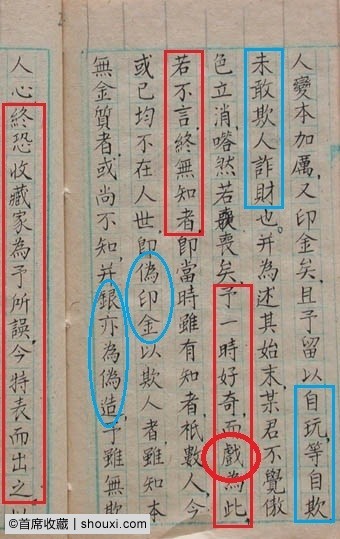 人變本加厲，又印金矣，且予留以自玩，等自欺
未敢欺人詐財也。并為述其始末，某君不覺傲
色立消，嗒然若喪矣，予一時好奇，而戲為此，
若不言，終無知者，即當時雖有知者，祇數人，今
或已均不在人世，即偽印金以欺人者，雖知本
無金質者，或尚不知，并銀亦為偽造，予雖無欺
人心，終恐收藏家為予所誤，今特表而出之，以
©首席收藏 | shouxi.com